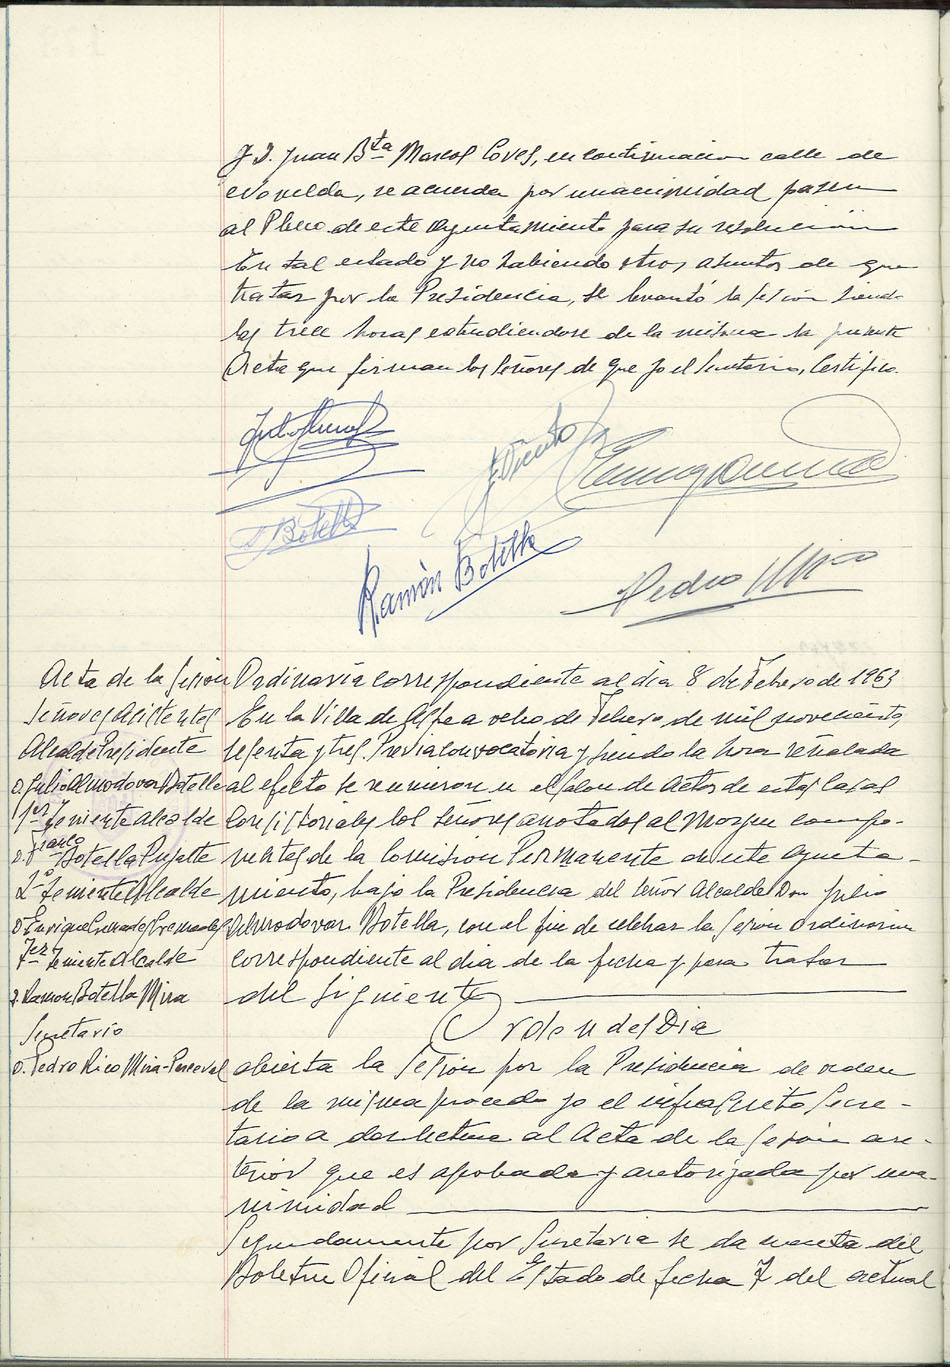 y D. Juan Bta Marcos Coves, en continuacion calle de
Novelda, se acuerda por unanimidad pasen
al Pleno de este Ayuntamiento para su resolución
En tal estado y no habiendo otros asuntos de que
tratar por la Presidencia, se levantó la sesión siendo
las trece horas extendiendose de la misma la presente
Acta que firman los Señores de que yo el Secretario, Certifico.
Botella
Ramón Botella
Pedro Rico
Acta de la Sesion Ordinaria correspondiente al dia 8 de Febrero de 1963
Señores Asistentes
Alcalde Presidente
D. Julio Almodovar Botella
1er Teniente Alcalde
Botella Pujalte
2º Teniente Alcalde
D. Enrique
3er Teniente Alcalde
D. Ramon Botella Mira
Secretario
D. Pedro Rico Mira-Perceval
En la Villa de Aspe a ocho de Febrero de mil novecientos
sesenta y tres. Previa convocatoria y siendo la hora señalada
al efecto se reunieron en el Salon de Actos de estas Casas
Consistoriales los Señores anotados al Margen compo-
nentes de la Comision Permanente de este Ayunta-
miento, bajo la Presidencia del Señor Alcalde Don Julio
Almodovar Botella, con el fin de celebrar la Sesion Ordinaria
correspondiente al dia de la fecha y para tratar
del siguiente
Orden del Dia
abierta la Sesion por la Presidencia de orden
de la misma procedo yo el infrascrito Secre-
tario a dar lectura al Acta de la Sesion an-
terior que es aprobada y autorizada por una-
nimidad
Segundamente por Secretaria se da cuenta del
Boletin Oficial del Estado de fecha 7 del actual